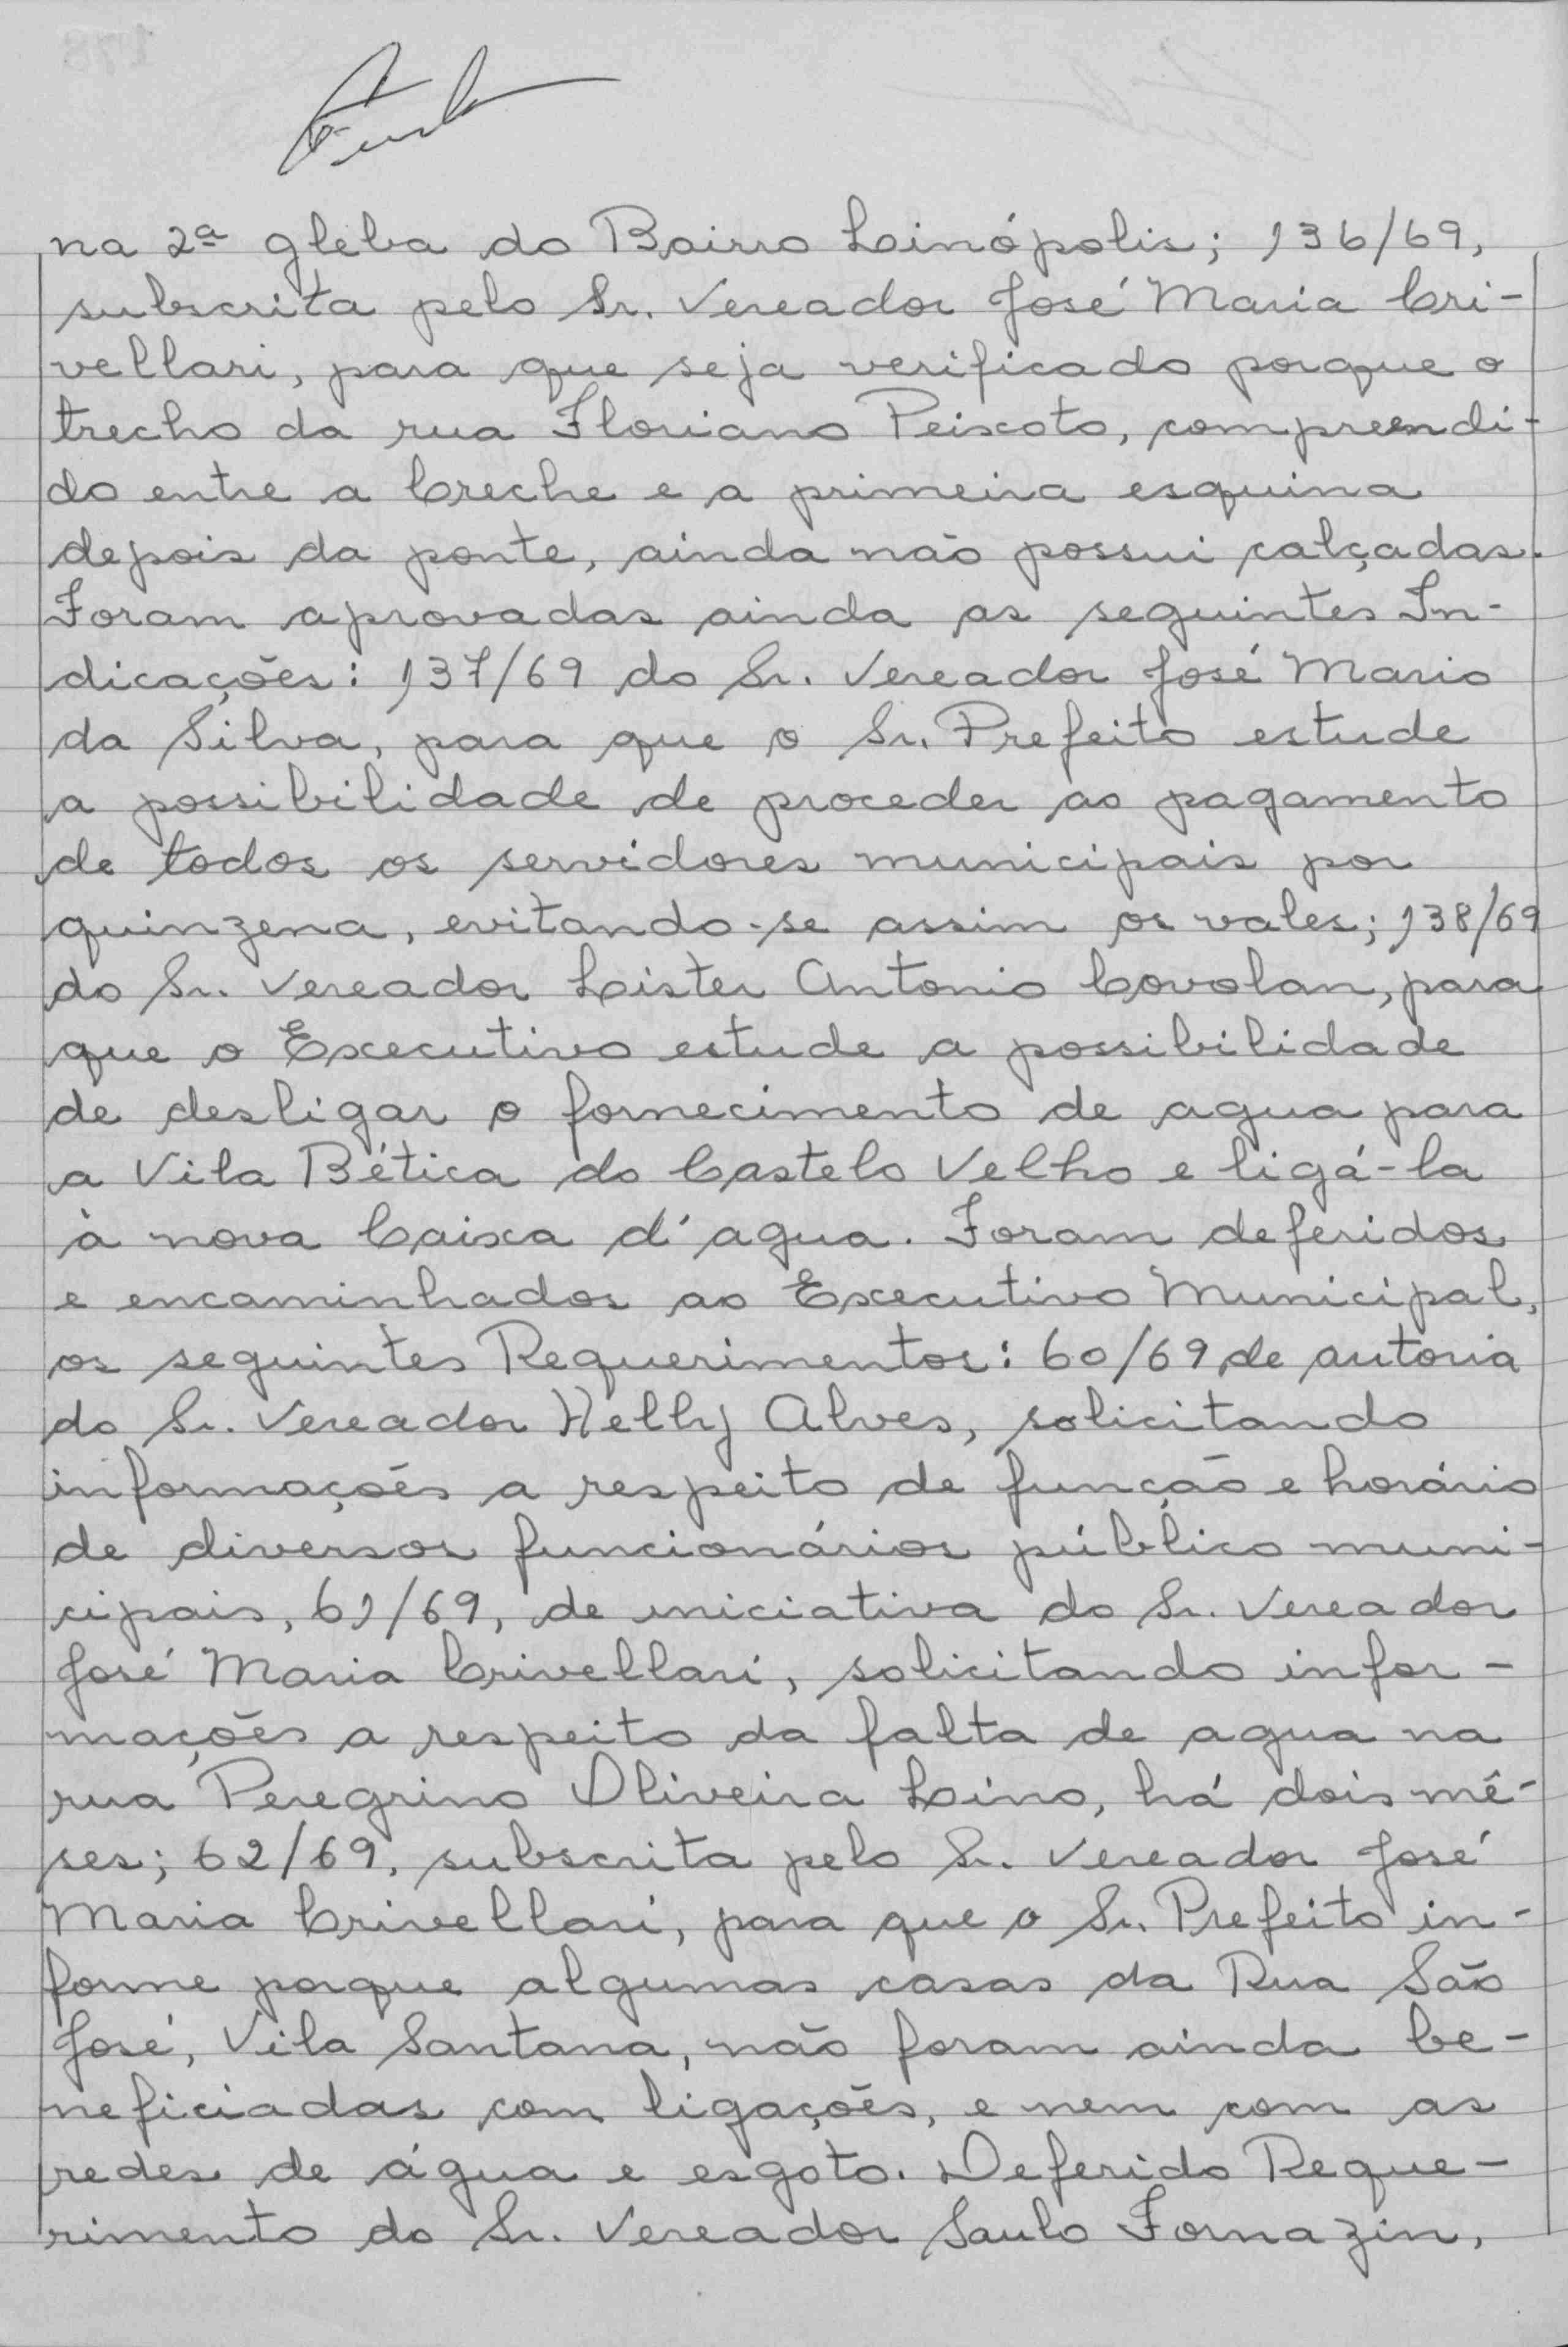 na 2ª gleba do Bairro Linópolis; 136/69,
subscrita pelo Sr. Vereador José Maria Cri-
vellari, para que seja verificado porque o
trecho da rua Floriano Peixoto, compreendi-
do entre a Creche e a primeira esquina
depois da ponte, ainda não possui calçadas.
Foram aprovadas ainda as seguintes In-
dicações: 137/69 do Sr. Vereador José Mario
da Silva, para que o Sr. Prefeito estude
a possibilidade de proceder ao pagamento
de todos os servidores municipais por
quinzena, evitando-se assim os vales; 138/69
do Sr. Vereador Lister Antonio Covolan, para
que o Executivo estude a possibilidade
de desligar o fornecimento de agua para
a Vila Bética do Castelo Velho e ligá-la
à nova Caixa d'agua. Foram deferidos
e encaminhados ao Executivo Municipal,
os seguintes Requerimentos: 60/69 de autoria
do Sr. Vereador Helly Alves, solicitando
informações a respeito de função e horário
de diversos funcionários público muni-
cipais, 61/69, de iniciativa do Sr. Vereador
José Maria Crivellari, solicitando infor-
mações a respeito da falta de agua na
rua Peregrino Oliveira Lino, há dois mê-
ses; 62/69, subscrita pelo Sr. Vereador José
Maria Crivellari, para que o Sr. Prefeito in-
forme porque algumas casas da Rua São
José, Vila Santana, não foram ainda be-
neficiadas com ligações, e nem com as
redes de água e esgoto. Deferido Reque-
rimento do Sr. Vereador Saulo Fornazin,